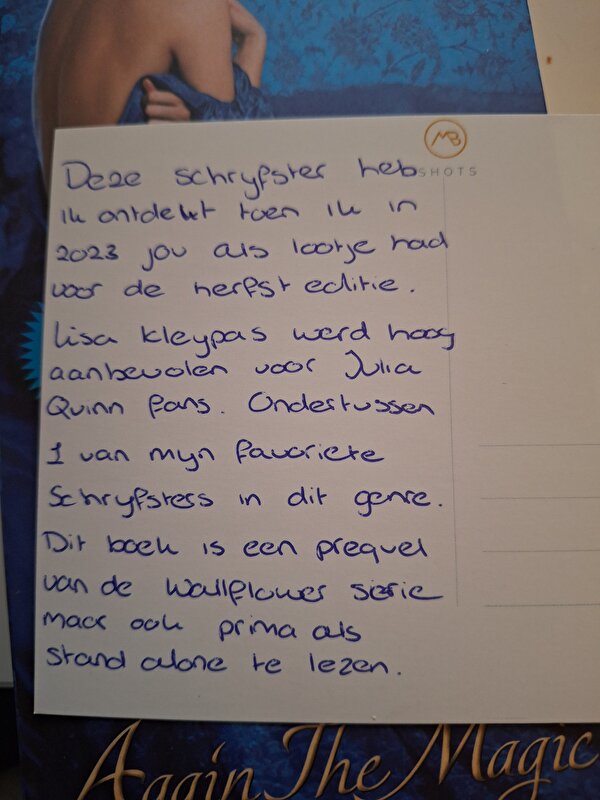 MB
SHOTS
Deze schryfster heb
ik ontdekt toen ik in
2023 jou als lootje had
voor de herfst editie.
Lisa Kleypas werd hoog
aanbevolen voor Julia
Quinn fans. Ondertussen
1 van myn favoriete
Schryfsters in dit genre.
Dit boek is een prequel
van de Wallflower serie
maar ook prima als
stand alone te lezen.
Again The Magic